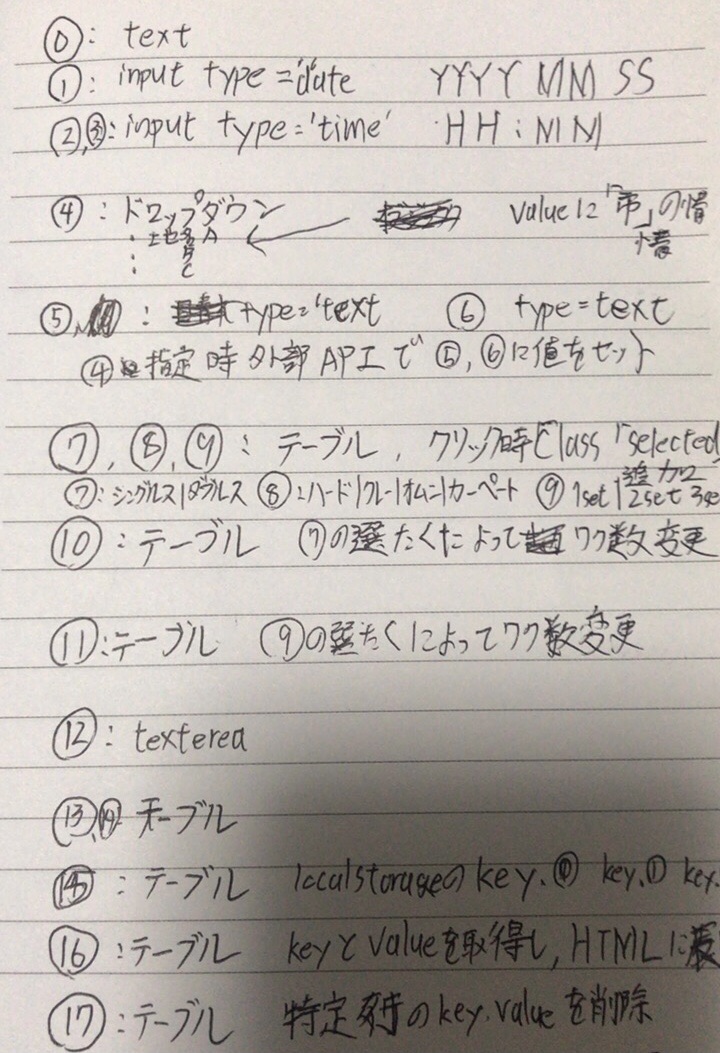 ⓪: text
①: input type='date YYYY MM SS
②,③: input type='time' HH:MM
④: ドロップダウン valueに「市」の情
・土地名A 情
・B
・C
⑤ : type='text ⑥ type=text
④指定時外部APIで⑤,⑥に値をセット
⑦,⑧,⑨: テーブル, クリック時class「selected
追加
⑦:シングルス|ダブルス ⑧:ハード|クレー|オムニ|カーペート ⑨1set|2set 3se
⑩:テーブル ⑦の選たくたよって ワク数変更
⑪:テーブル ⑨の選たくによってワク数変更
⑫: texterea
⑬,⑭ テーブル
⑮ : テーブル localstorageのkey.⓪ key.① key.
⑯ :テーブル keyとvalueを取得し, HTMLに表
⑰:テーブル 特定 のkey.valueを削除